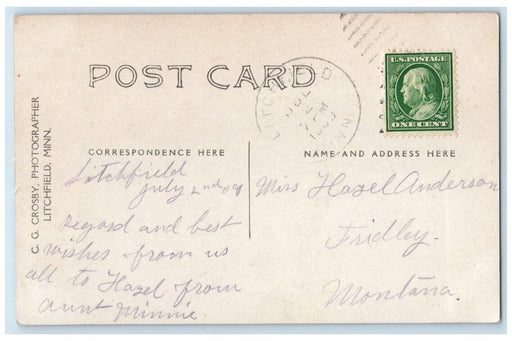 POST CARD
LITCHFIELD
JUL
2
PM
1909
MINN.
U.S. POSTAGE
ONE CENT
C. G. CROSBY, PHOTOGRAPHER
LITCHFIELD, MINN.
CORRESPONDENCE HERE
Litchfield
July 2nd 09
Regard and best
wishes from us
all to Hazel from
aunt Minnie.
NAME AND ADDRESS HERE
Miss Hazel Anderson
Fridley.
Montana.